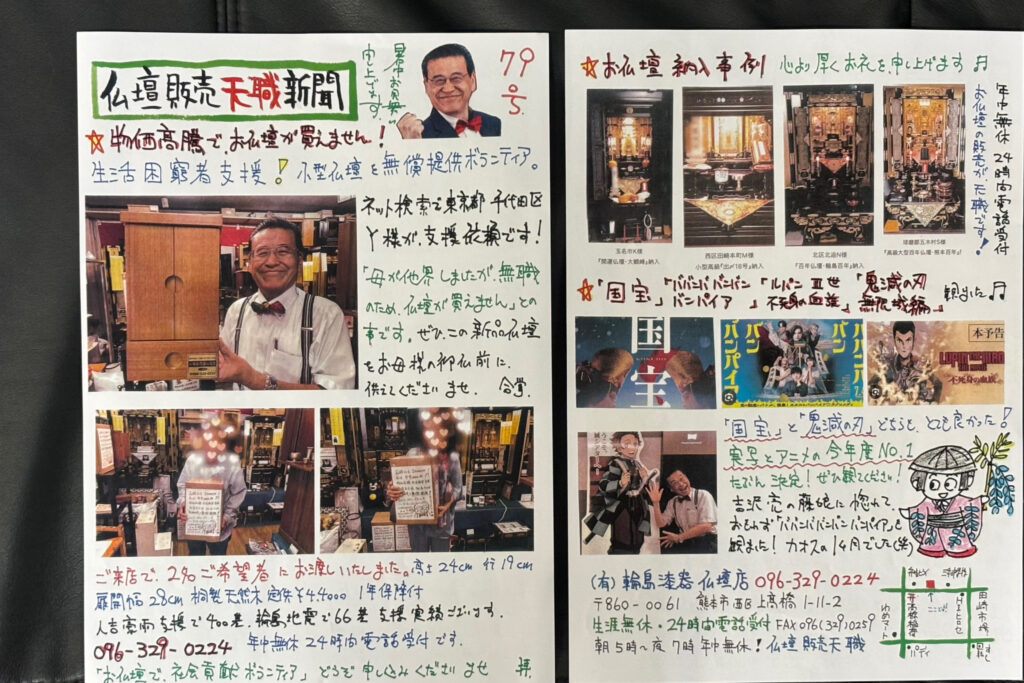 仏壇販売天職新聞
暑中お見舞い
申し上げます。
79
0.5
☆物価高騰で、お仏壇が買えません!
生活困窮者支援!小型仏壇を無償提供ボランティア。
ネット検索で東京都千代田区
Y様が、支援依頼です!
「母が他界しましたが、無職
のため、仏壇が買えません」との
事です。ぜひ、この新品仏壇
をお母様の御仏前に、
供えてくださいませ 合掌
ご来店で、2名ご希望者にお渡しいたしました。高さ24cm 行19cm
扉開幅28cm 桐製天然木 定価¥44000 1年保障付
人吉豪雨支援で400基、輪島地震で66基支援実績ございます。
096-329-0224 年中無休24時間電話受付です。
「お仏壇で、社会貢献ボランティア」どうぞ申し込みくださいませ 拝
☆お仏壇納入事例 心より厚くお礼を申し上げます♬
年中無休24時間電話受付
お仏壇の販売が天職です!
玉名市K様
『開運仏壇・大鶴崎』納入
西区田崎本町M様
小型高級『出〆16号』納入
北区北迫N様
『百年仏壇・輪島百年』納入
球磨郡五木村S様
『高級大型百年仏壇・熊本百年』
☆「国宝」「ババンババンバンバンパイア」「ルパン三世 不死身の血族」「鬼滅の刃 無限城編」観ました♬
国宝
ババンババン
バン
バンパイア
本予告
LUPIN THE IIIRD
THE MOVIE
不死身の血族
「国宝」と「鬼滅の刃」どちらも、とても良かった!
実写とアニメの今年度No.1
たぶん決定!ぜひ観てください!
吉沢亮の藤娘に惚れて、
おもわず「ババンババンバンバンパイア」も
観ました!カオスの1ヶ月でした(笑)
(有)輪島漆器仏壇店 096-329-0224
〒860-0061 熊本市西区上高橋1-11-2
生涯無休・24時間電話受付 FAX096(329)0259
朝5時〜夜7時 年中無休!仏壇販売天職
田崎市場
ここに!